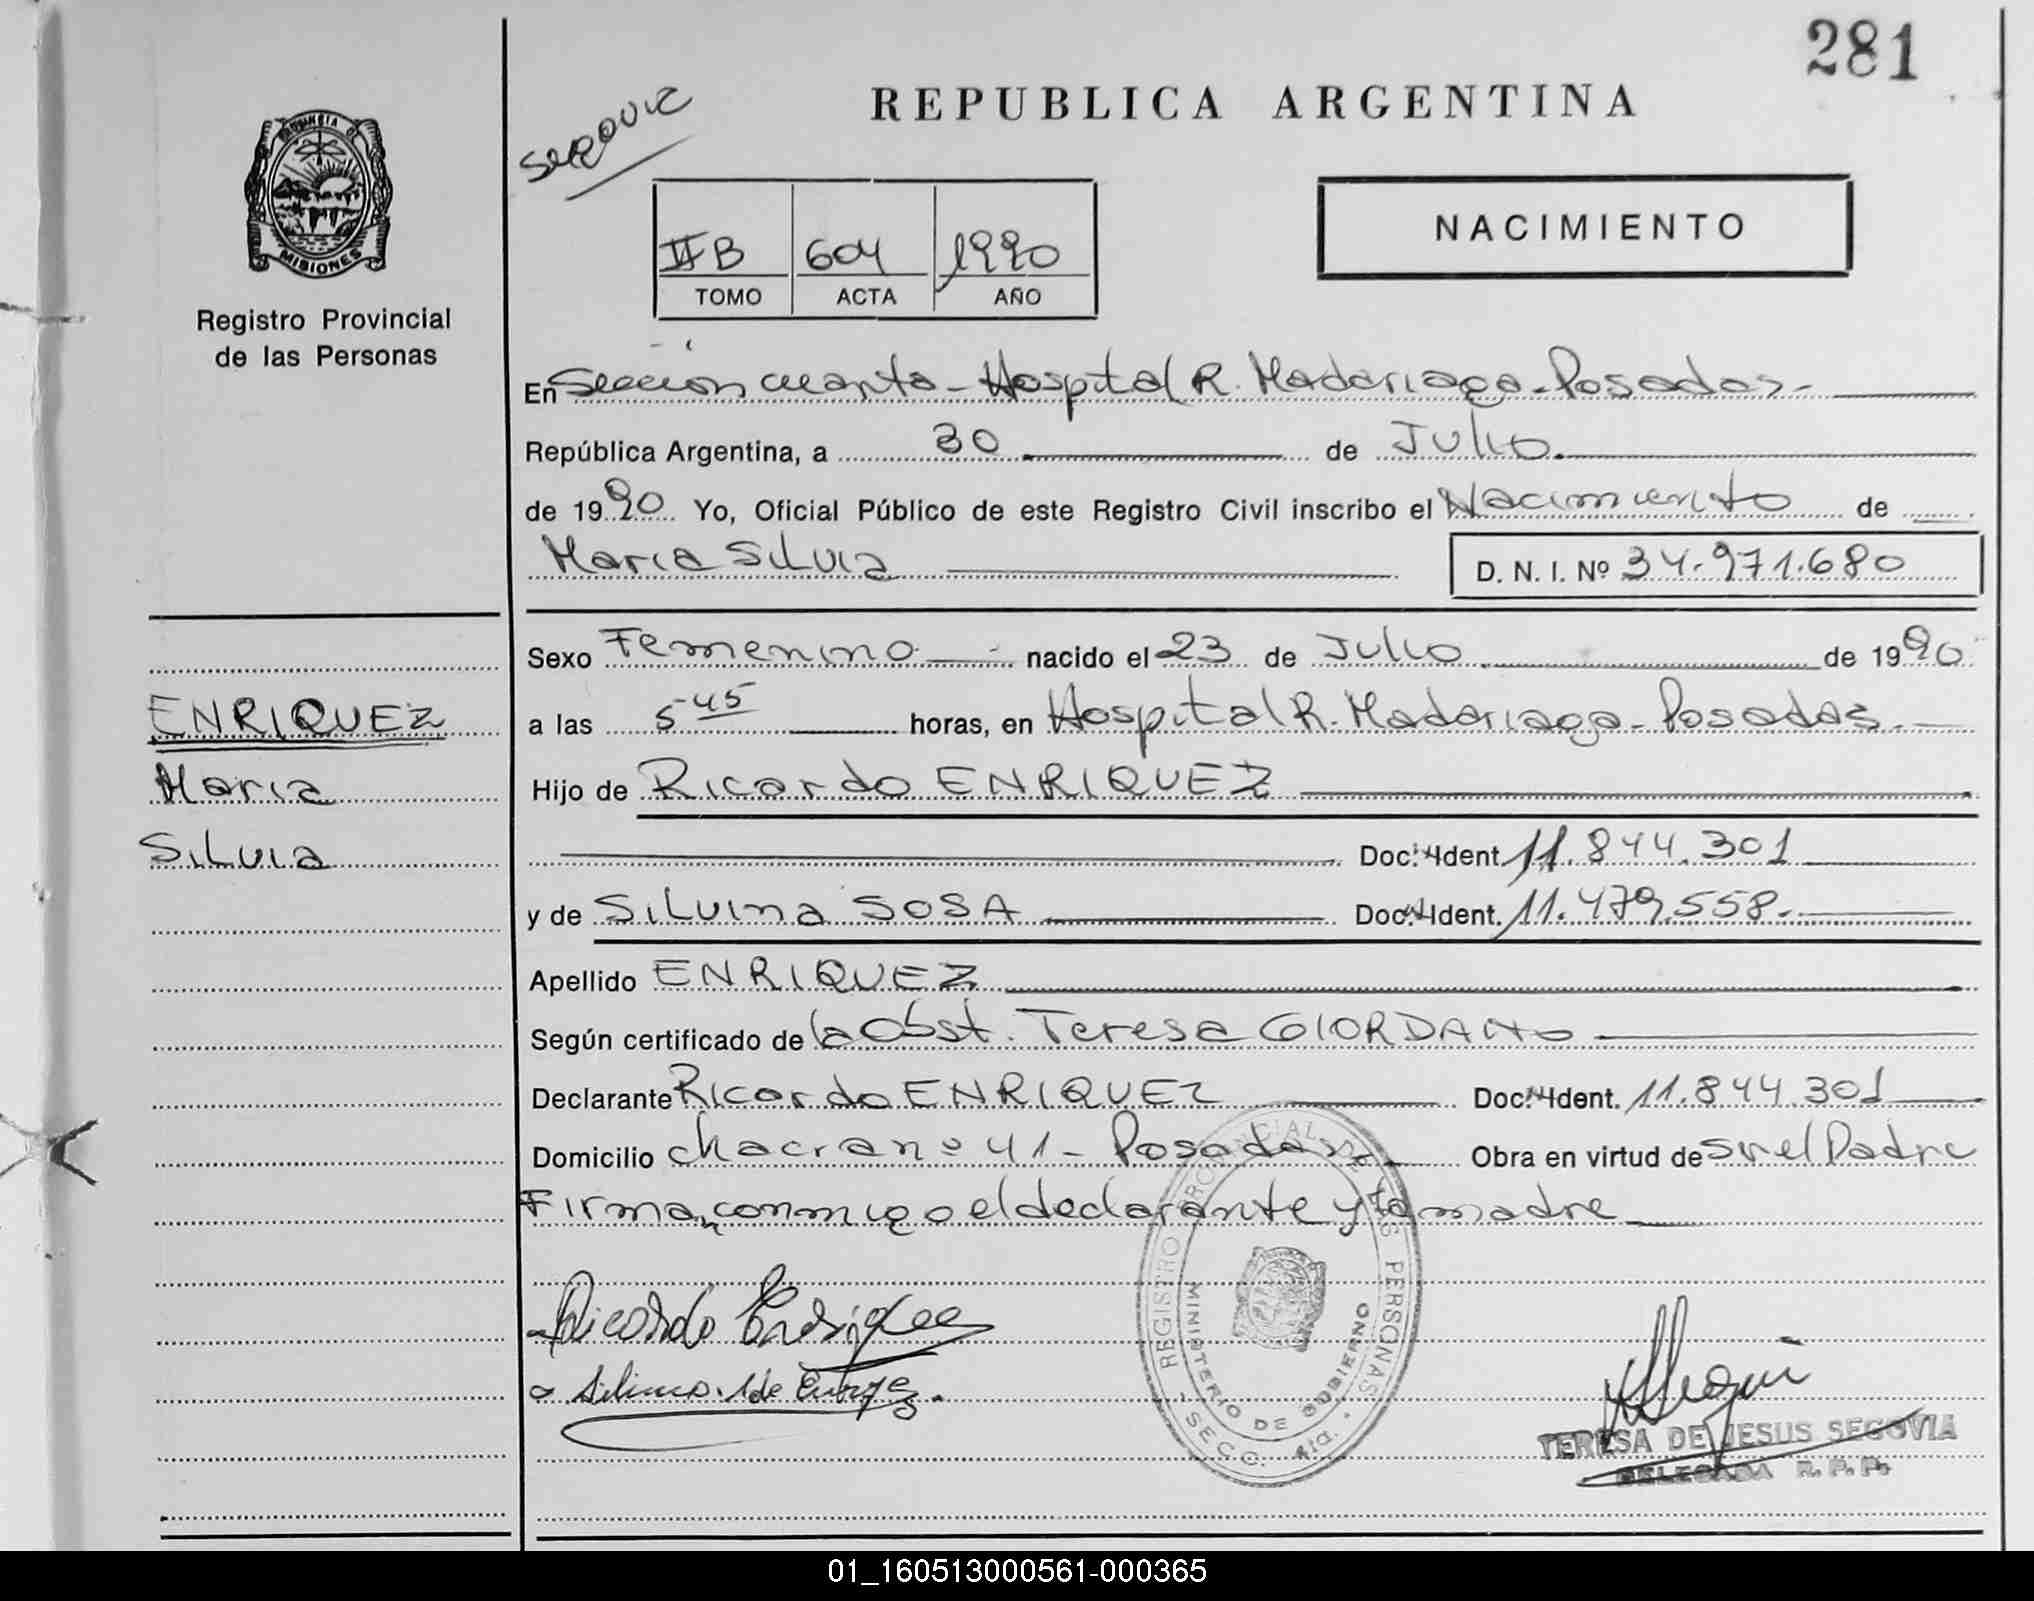 281
REPUBLICA ARGENTINA
NACIMIENTO
II B 604 1990
TOMO ACTA AÑO
PROVINCIA DE
MISIONES
Registro Provincial
de las Personas
En Sección cuarta - Hospital R. Madariaga - Posadas -
República Argentina, a 30 de Julio.
de 1990 Yo, Oficial Público de este Registro Civil inscribo el Nacimiento de
Maria Silvia D. N. I. Nº 34.971.680
Sexo Femenino nacido el 23 de Julio de 1990
a las 5-45 horas, en Hospital R. Madariaga - Posadas -
Hijo de Ricardo ENRIQUEZ
Doc. Ident. 11.844.301
y de Silvina SOSA Doc. Ident. 11.479.558.-
Apellido ENRIQUEZ
Según certificado de la Obst. Teresa GIORDANO
Declarante Ricardo ENRIQUEZ Doc. Ident. 11.844.301
Domicilio chacra nº 41 - Posadas - Obra en virtud de Sr el Padre
Firman conmigo el declarante y la madre
ENRIQUEZ
Maria
Silvia
Ricardo Enriquez
REGISTRO PROVINCIAL DE LAS PERSONAS
MINISTERIO DE GOBIERNO
- SECC. 4ta. -
TERESA DE JESUS SEGOVIA
DELEGADA R. P. P.
01_160513000561-000365